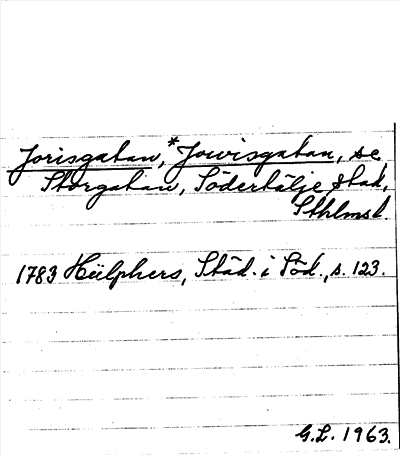 Jorisgatan, *Jowisgatan, se
Storgatan, Södertälje stad,
Sthlms l.
1783 Hülphers, Städ. i Söd., s. 123.
G.L. 1963.